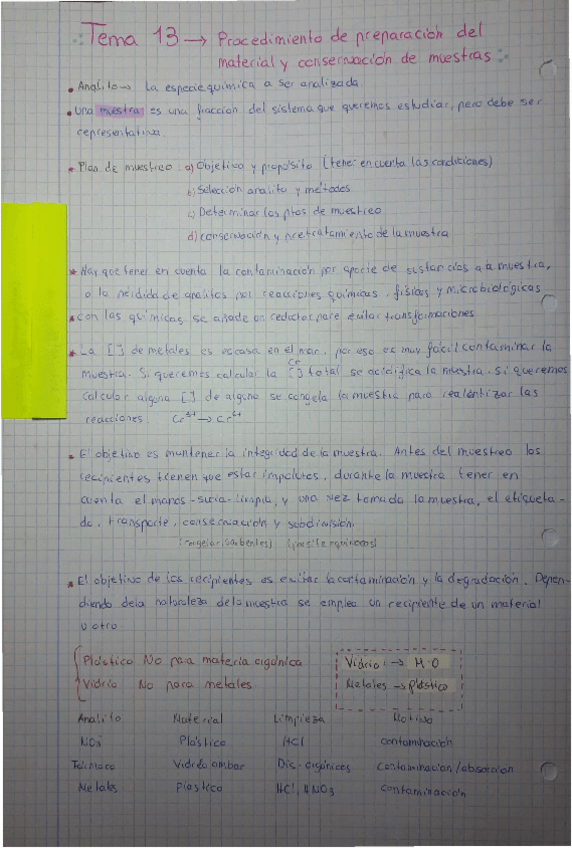 Tema 13 → Procedimiento de preparación del
material y conservación de muestras
• Analito → La especie química a ser analizada.
• Una muestra es una fracción del sistema que queremos estudiar, pero debe ser
representativa.
• Plan de muestreo: a) Objetivo y propósito (tener en cuenta las condiciones)
b) Selección analito y métodos
c) Determinar los ptos de muestreo
d) conservación y pretratamiento de la muestra
• Hay que tener en cuenta la contaminación por aporte de sustancias a la muestra,
o la pérdida de analitos por reacciones químicas, físicas y microbiológicas
• con las químicas se añade un reductor para evitar transformaciones
• La [ ] de metales es escasa en el mar, por eso es muy fácil contaminar la
muestra. Si queremos calcular la [ ] Cr total se acidifica la muestra. Si queremos
calcular alguna [ ] de alguno se congela la muestra para realentizar las
reacciones
• El objetivo es mantener la integridad de la muestra. Antes del muestreo los
recipientes tienen que estar impolutos, durante la muestra tener en
cuenta el manos-sucia-limpia, y una vez tomada la muestra, el etiqueta-
do, transporte, conservación y subdivisión.
• El objetivo de los recipientes es evitar la contaminación y la degradación. Depen-
diendo de la naturaleza de la muestra se emplea un recipiente de un material
u otro.
Plástico No para materia orgánica
Vidrio No para metales
Vidrio: → M.O
Metales → plástico
Analito Material Limpieza Motivo
Plástico HCl contaminación
Vidrio ambar Dis. orgánicos Contaminación/absorción
Metales Plastico HCl, HNO3 Contaminación